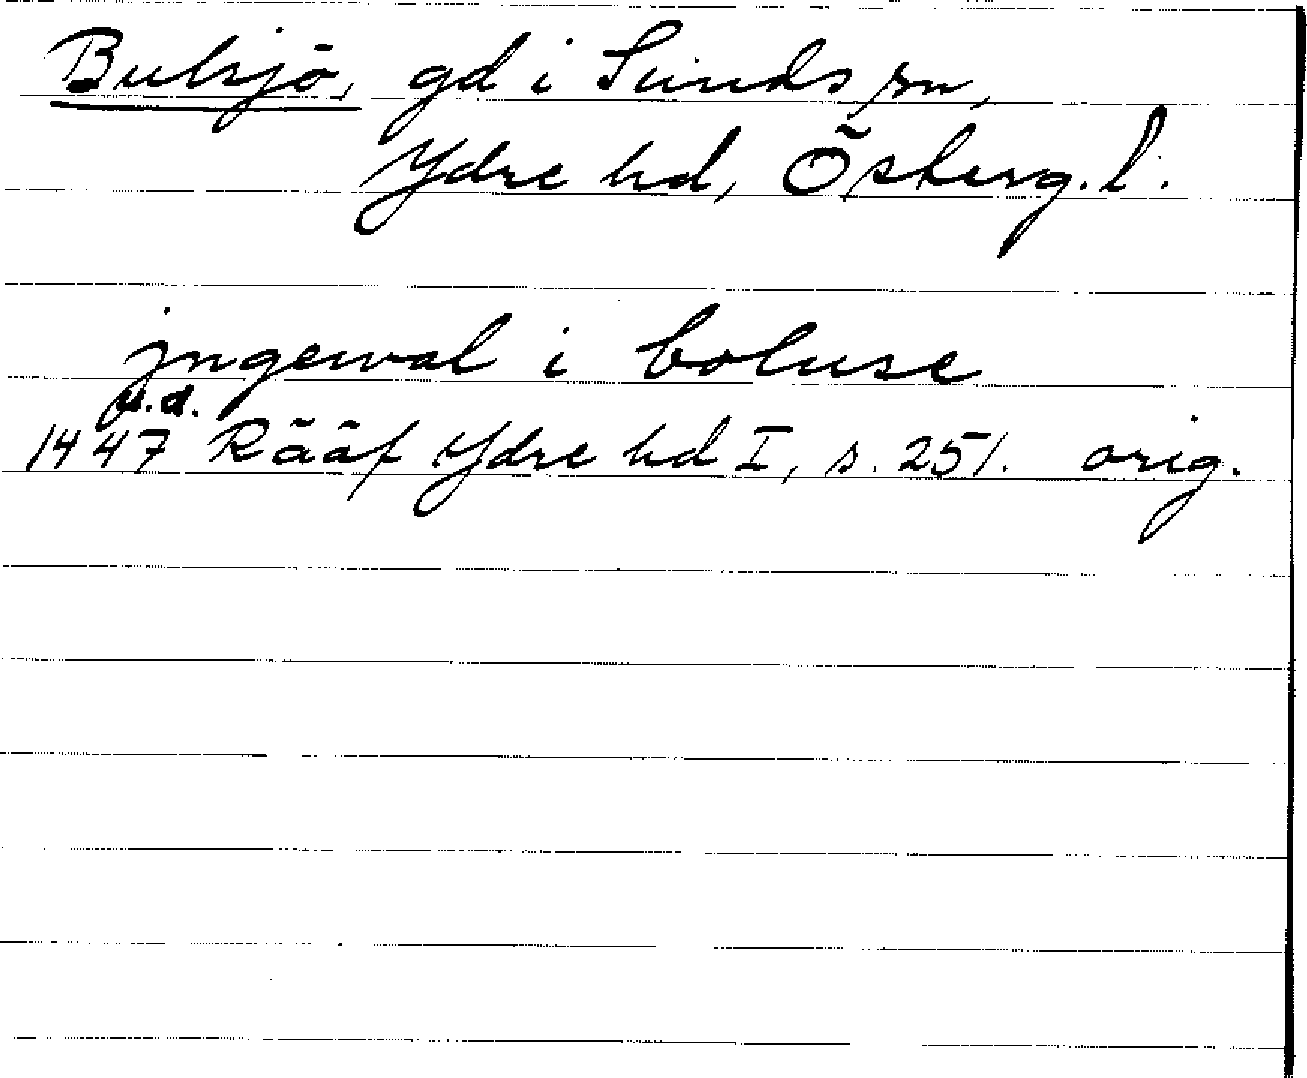 Bulsjö, gd i Sunds sn,
Ydre hd, Österg. l.
jngewal i boluse
u.d.
1447 Rääf Ydre hd I, s. 251. orig.